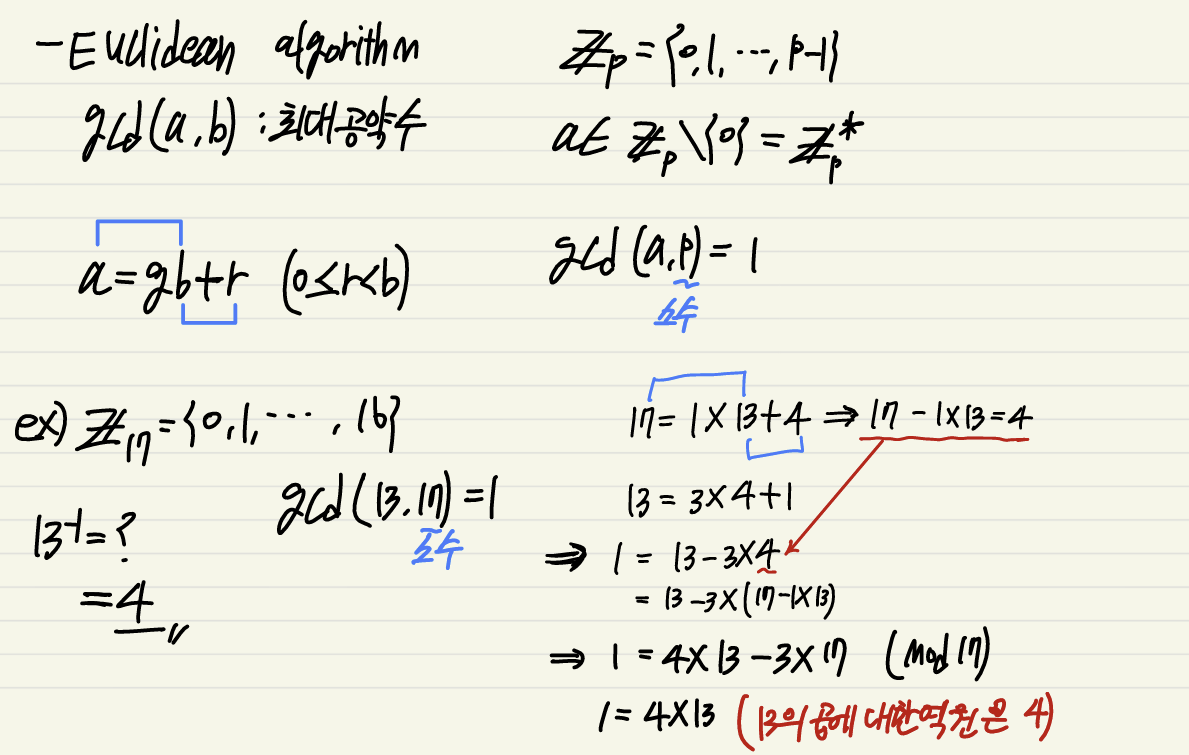 - Euclidean algorithm
gcd(a,b) : 최대공약수
a = gb+r (0≤r<b)
ex) ℤ₁₇ = {0,1,⋯,16}
gcd(13,17) = 1
소수
13⁻¹ = ?
= 4
ℤₚ = {0,1,⋯,p-1}
a∈ ℤₚ\{0} = ℤₚ*
gcd(a,p) = 1
소수
17 = 1×13+4 ⇒ 17 - 1×13 = 4
13 = 3×4+1
⇒ 1 = 13 - 3×4
= 13 - 3×(17-1×13)
⇒ 1 = 4×13 - 3×17 (mod 17)
1 = 4×13 (13의 곱에 대한 역원은 4)